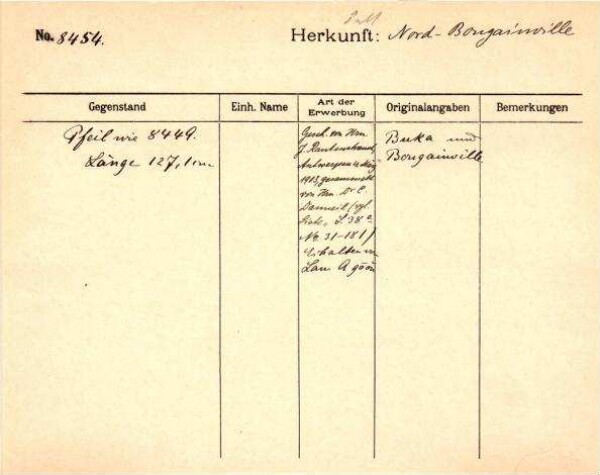 No. 8454.
Herkunft: Nord-Bougainville
Gegenstand
Einh. Name
Art der Erwerbung
Originalangaben
Bemerkungen
Pfeil wie 8449.
Länge 127,1 cm
Gesch. von Hrn
J. Rautenstrauch,
Antwerpen
1913, gesammelt
von Hrn. Dr. E.
No 31-181)
Erhalten
Buka und
Bougainville